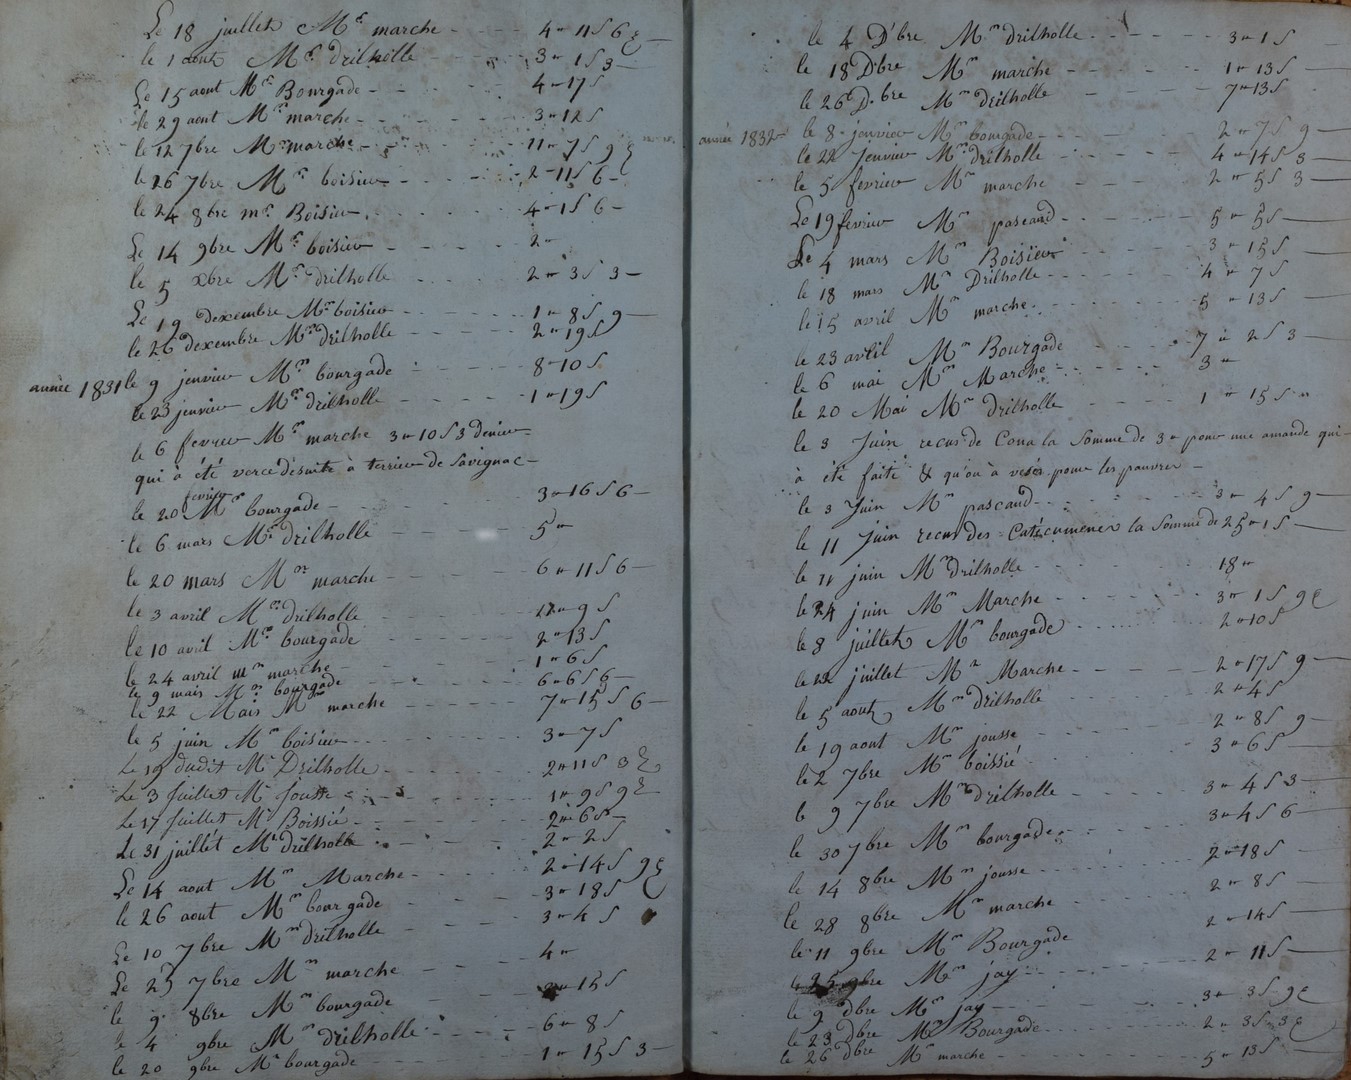 Le 18 juillet Mr marche 4 " 11 S 6
le 1 aout Mr drilholle 3 " 1 S 3
Le 15 aout Mr Bourgade 4 - 17 S
le 29 aout Mr marche 3 " 12 S
le 12 7bre Mr marche 11 " 7 S 9
le 26 7bre Mr boisieu 2 - 11 S 6
le 24 8bre mr Boisieu 4 - 1 S 6
Le 14 9bre Mr boisieu 2 "
le 5 xbre Mr drilholle 2 " 3 S 3
Le 19 dexembre Mr boisieu 1 " 8 S 9
le 26 dexembre Mr drilholle 2 " 19 S
année 1831 le 9 jenvier Mr bourgade 8 - 10 S
le 23 jenvier Mr drilholle 1 " 19 S
le 6 fevrier Mr marche 3 " 10 S 3 denier
qui à été verce désuite à terrier de Savignac
le 20 fevrier Mr bourgade 3 " 16 S 6
le 6 mars Mr drilholle 5 "
le 20 mars Mr marche 6 " 11 S 6
le 3 avril Mr drilholle " 9 S
le 10 avril Mr bourgade 2 " 13 S
le 24 avril mr marche 1 " 6 S
le 9 mais Mr bourgade 6 " 6 S 6
le 22 Mais Mr marche 7 " 15 S 6
le 5 juin Mr boisieu 3 " 7 S
Le 19 dudit Mr Drilholle 2 " 11 S 3
Le 3 Juillet Mr Jousse 1 " 9 S 9
Le 17 Juillet Mr Boissié 2 " 6 S
Le 31 juillet Mr drilholle 2 " 2 S
Le 14 aout Mr Marche 2 " 14 S 9
le 26 aout Mr bourgade 3 " 18 S
Le 10 7bre Mr drilholle 3 " 4 S
Le 25 7bre Mr marche 4 "
le 9 8bre Mr bourgade " 15 S
le 4 9bre Mr drilholle 6 " 8 S
le 20 9bre Mr bourgade 1 " 15 S 3
le 4 D'bre Mr drilholle 3 " 1 S
le 18 D'bre Mr marche 1 " 13 S
le 26 D.bre Mr drilholle 7 " 13 S
année 1832 le 8 jenvier Mr bourgade 2 " 7 S 9
le 22 Jenvier Mr drilholle 4 " 14 S 3
le 5 fevrier Mr marche 2 " 5 S 3
Le 19 fevrier Mr pascaud 5 " 5 S
Le 4 mars Mr Boisieu 3 " 15 S
le 18 mars Mr Drilholle 4 " 7 S
le 15 avril Mr marche 5 " 13 S
le 23 avril Mr Bourgade 7 " 2 S 3
le 6 mai Mr Marche 3 "
le 20 Mai Mr drilholle 1 " 15 S "
le 3 Juin recus de la Somme de 3 " pour une amande qui
à été faité & qu'on à pour les pauvres
le 3 Juin Mr pascaud 3 " 4 S 9
le 11 Juin recus des Catécumenes la Somme de 25 " 1 S
le 11 juin Mr drilholle 18 "
le 24 juin Mr Marche 3 " 1 S 9
le 8 juillet Mr bourgade 2 " 10 S
le 22 juillet Mr Marche 2 " 17 S 9
le 5 aout Mr drilholle 2 " 4 S
le 19 aout Mr jousse 2 " 8 S 9
le 2 7bre Mr boissié 3 " 6 S
le 9 7bre Mr drilholle 3 " 4 S 3
le 30 7bre Mr bourgade 3 " 4 S 6
le 14 8bre Mr jousse 2 " 18 S
le 28 8bre Mr marche 2 " 8 S
le 11 9bre Mr Bourgade 2 " 14 S
le 25 9bre Mr jay 2 " 11 S
le 9 dbre Mr jay 3 " 3 S 9
le 23 Dbre Mr Bourgade 2 " 3 S 3
le 26 Dbre Mr marche 5 " 13 S